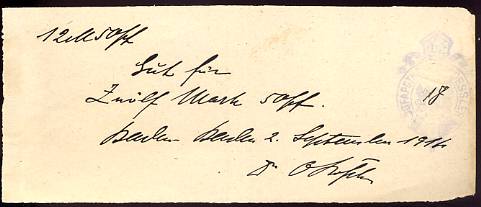 12 M 50 Pf
Gut für
18
Zwölf Mark 50 Pf.
Baden-Baden 2. September 1914
Dr